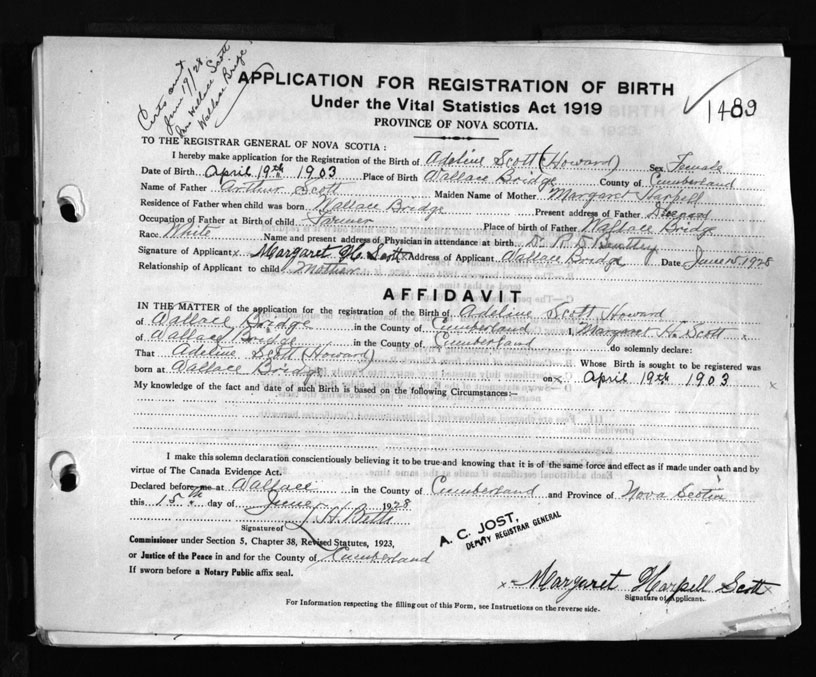 Certs out
June 19/28
Per Wallace Scott
Wallace Bridge
APPLICATION FOR REGISTRATION OF BIRTH
Under the Vital Statistics Act 1919
PROVINCE OF NOVA SCOTIA.
1489
TO THE REGISTRAR GENERAL OF NOVA SCOTIA :
I hereby make application for the Registration of the Birth of Adeline Scott (Howard) Sex Female
Date of Birth April 19th 1903 Place of Birth Wallace Bridge County of Cumberland
Name of Father Arthur Scott Maiden Name of Mother Margaret Harpell
Residence of Father when child was born Wallace Bridge Present address of Father Deceased
Occupation of Father at Birth of child Farmer Place of birth of Father Wallace Bridge
Race White Name and present address of Physician in attendance at birth Dr
Signature of Applicant x Margaret H. Scott x Address of Applicant Wallace Bridge Date June 15 1928
Relationship of Applicant to child Mother
AFFIDAVIT
IN THE MATTER of the application for the registration of the Birth of Adeline Scott Howard
of Wallace Bridge in the County of Cumberland I, Margaret H. Scott x
of Wallace Bridge in the County of Cumberland do solemnly declare:
That Adeline Scott (Howard) Whose Birth is sought to be registered was
born at Wallace Bridge on x April 19th 1903 x
My knowledge of the fact and date of such Birth is based on the following Circumstances:—
I make this solemn declaration conscientiously believing it to be true and knowing that it is of the same force and effect as if made under oath and by
virtue of The Canada Evidence Act.
Declared before me at Wallace in the County of Cumberland and Province of Nova Scotia
this 15th day of June 1928
J H Betts
Signature of
A. C. JOST,
DEPUTY REGISTRAR GENERAL
Commissioner under Section 5, Chapter 38, Revised Statutes, 1923,
or Justice of the Peace in and for the County of Cumberland
If sworn before a Notary Public affix seal.
x Margaret Harpell Scott x
Signature of Applicant.
For Information respecting the filling out of this Form, see Instructions on the reverse side.